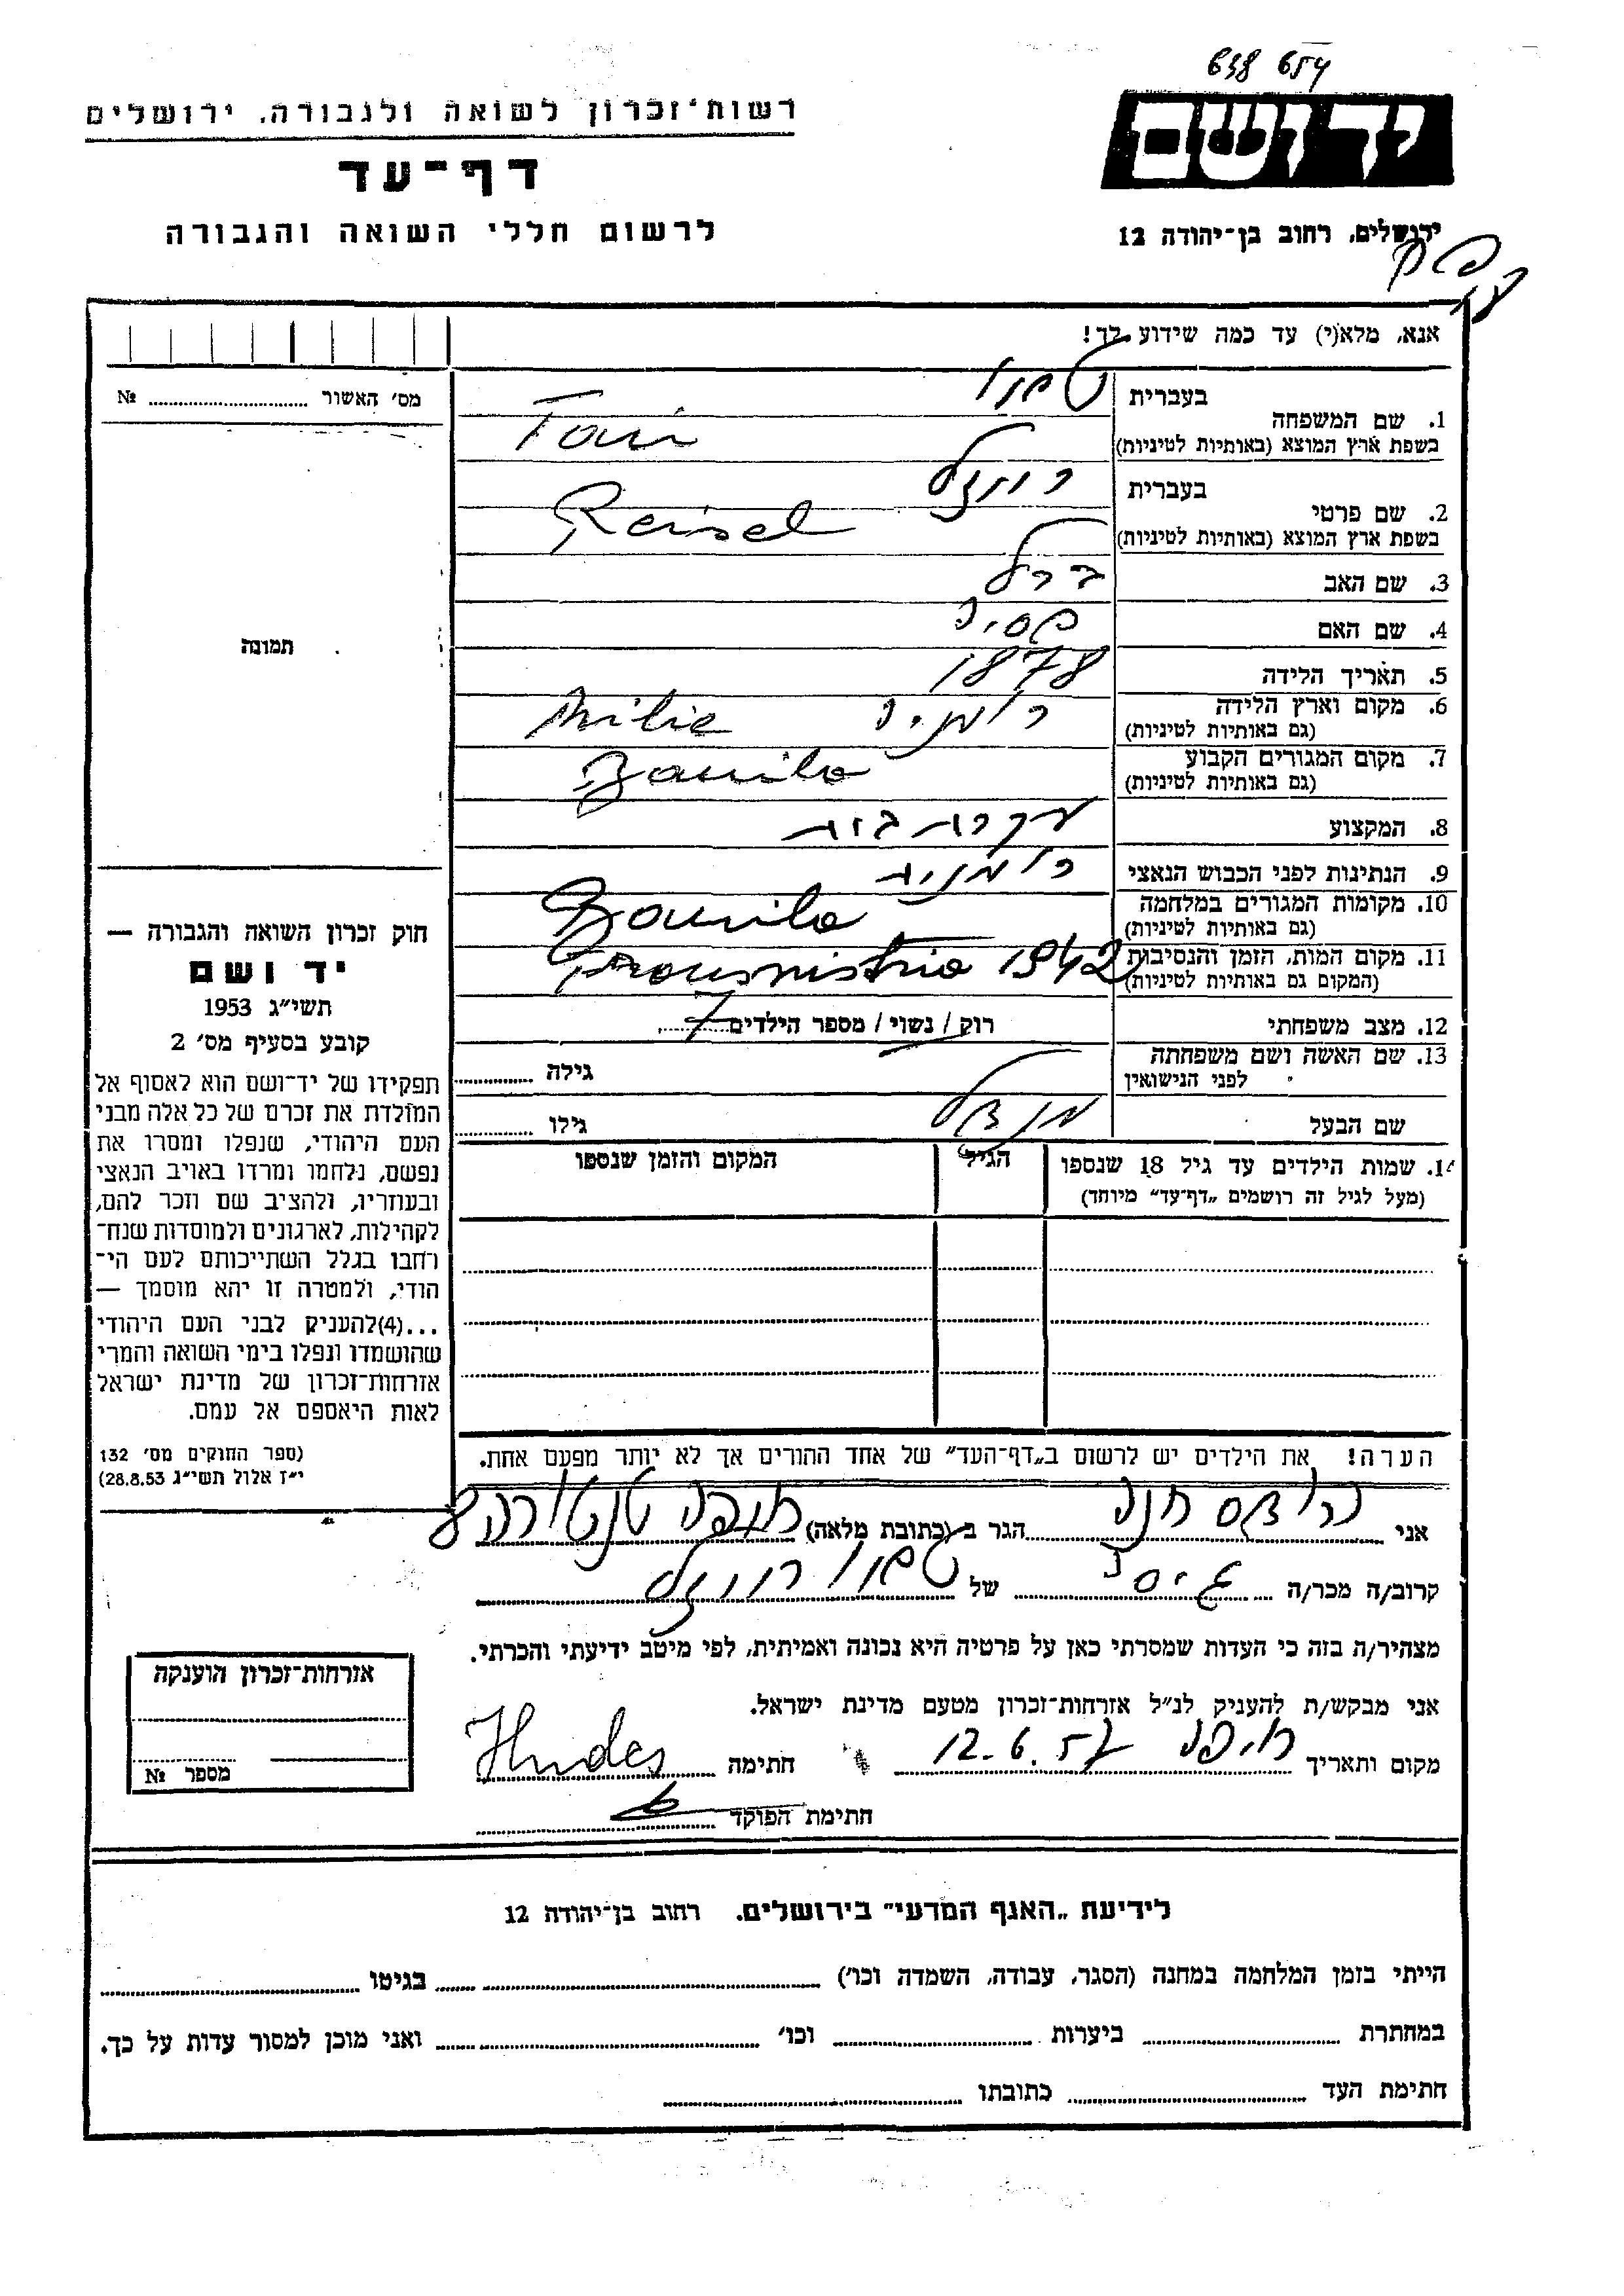 638 654
יד ושם
ירושלים, רחוב בן־יהודה 12
רשות־זכרון לשואה ולגבורה, ירושלים
דף־עד
לרשום חללי השואה והגבורה
אנא, מלא(י) עד כמה שידוע לך!
מס׳ האשור № 
תמונה
1. שם המשפחה
בעברית
בשפת ארץ המוצא (באותיות לטיניות)
2. שם פרטי
בעברית רויזל
בשפת ארץ המוצא (באותיות לטיניות) Reisel
3. שם האב ברל
4. שם האם
5. תאריך הלידה 1878
6. מקום וארץ הלידה רומניה Milie
(גם באותיות לטיניות)
7. מקום המגורים הקבוע Banila
(גם באותיות לטיניות)
8. המקצוע עקרת בית
9. הנתינות לפני הכבוש הנאצי רומנית
10. מקומות המגורים במלחמה Banila
(גם באותיות לטיניות)
11. מקום המות, הזמן והנסיבות 1942 Transnistria
(המקום גם באותיות לטיניות)
12. מצב משפחתי רוק / נשוי / מספר הילדים 7
13. שם האשה ושם משפחתה
לפני הנישואין גילה
שם הבעל מנדל גילו
14. שמות הילדים עד גיל 18 שנספו הגיל המקום והזמן שנספו
(מעל לגיל זה רושמים „דף־עד” מיוחד)
הערה! את הילדים יש לרשום ב„דף־העד” של אחד ההורים אך לא יותר מפעם אחת.
חוק זכרון השואה והגבורה —
יד ושם
תשי״ג 1953
קובע בסעיף מס׳ 2
תפקידו של יד־ושם הוא לאסוף אל
המולדת את זכרם של כל אלה מבני
העם היהודי, שנפלו ומסרו את
נפשם, נלחמו ומרדו באויב הנאצי
ובעוזריו, ולהציב שם וזכר להם,
לקהילות, לארגונים ולמוסדות שנח־
רחבו בגלל השתייכותם לעם הי־
הודי, ולמטרה זו יהא מוסמך —
...(4)להעניק לבני העם היהודי
שהושמדו ונפלו בימי השואה והמרי
אזרחות־זכרון של מדינת ישראל
לאות היאספם אל עמם.
(ספר החוקים מס׳ 132
י״ז אלול תשי״ג 28.8.53)
אני הודס חנה הגר ב (כתובת מלאה) חיפה
קרוב/ה מכר/ה גיסה של רויזל
מצהיר/ה בזה כי העדות שמסרתי כאן על פרטיה היא נכונה ואמיתית, לפי מיטב ידיעתי והכרתי.
אני מבקש/ת להעניק לנ״ל אזרחות־זכרון מטעם מדינת ישראל.
מקום ותאריך חיפה 12.6.57 חתימה Hudes
חתימת הפוקד
אזרחות־זכרון הוענקה
מספר №
לידיעת „האגף המדעי” בירושלים, רחוב בן־יהודה 12
הייתי בזמן המלחמה במחנה (הסגר, עבודה, השמדה וכו׳) בגיטו
במחתרת ביערות וכו׳ ואני מוכן למסור עדות על כך.
חתימת העד כתובתו